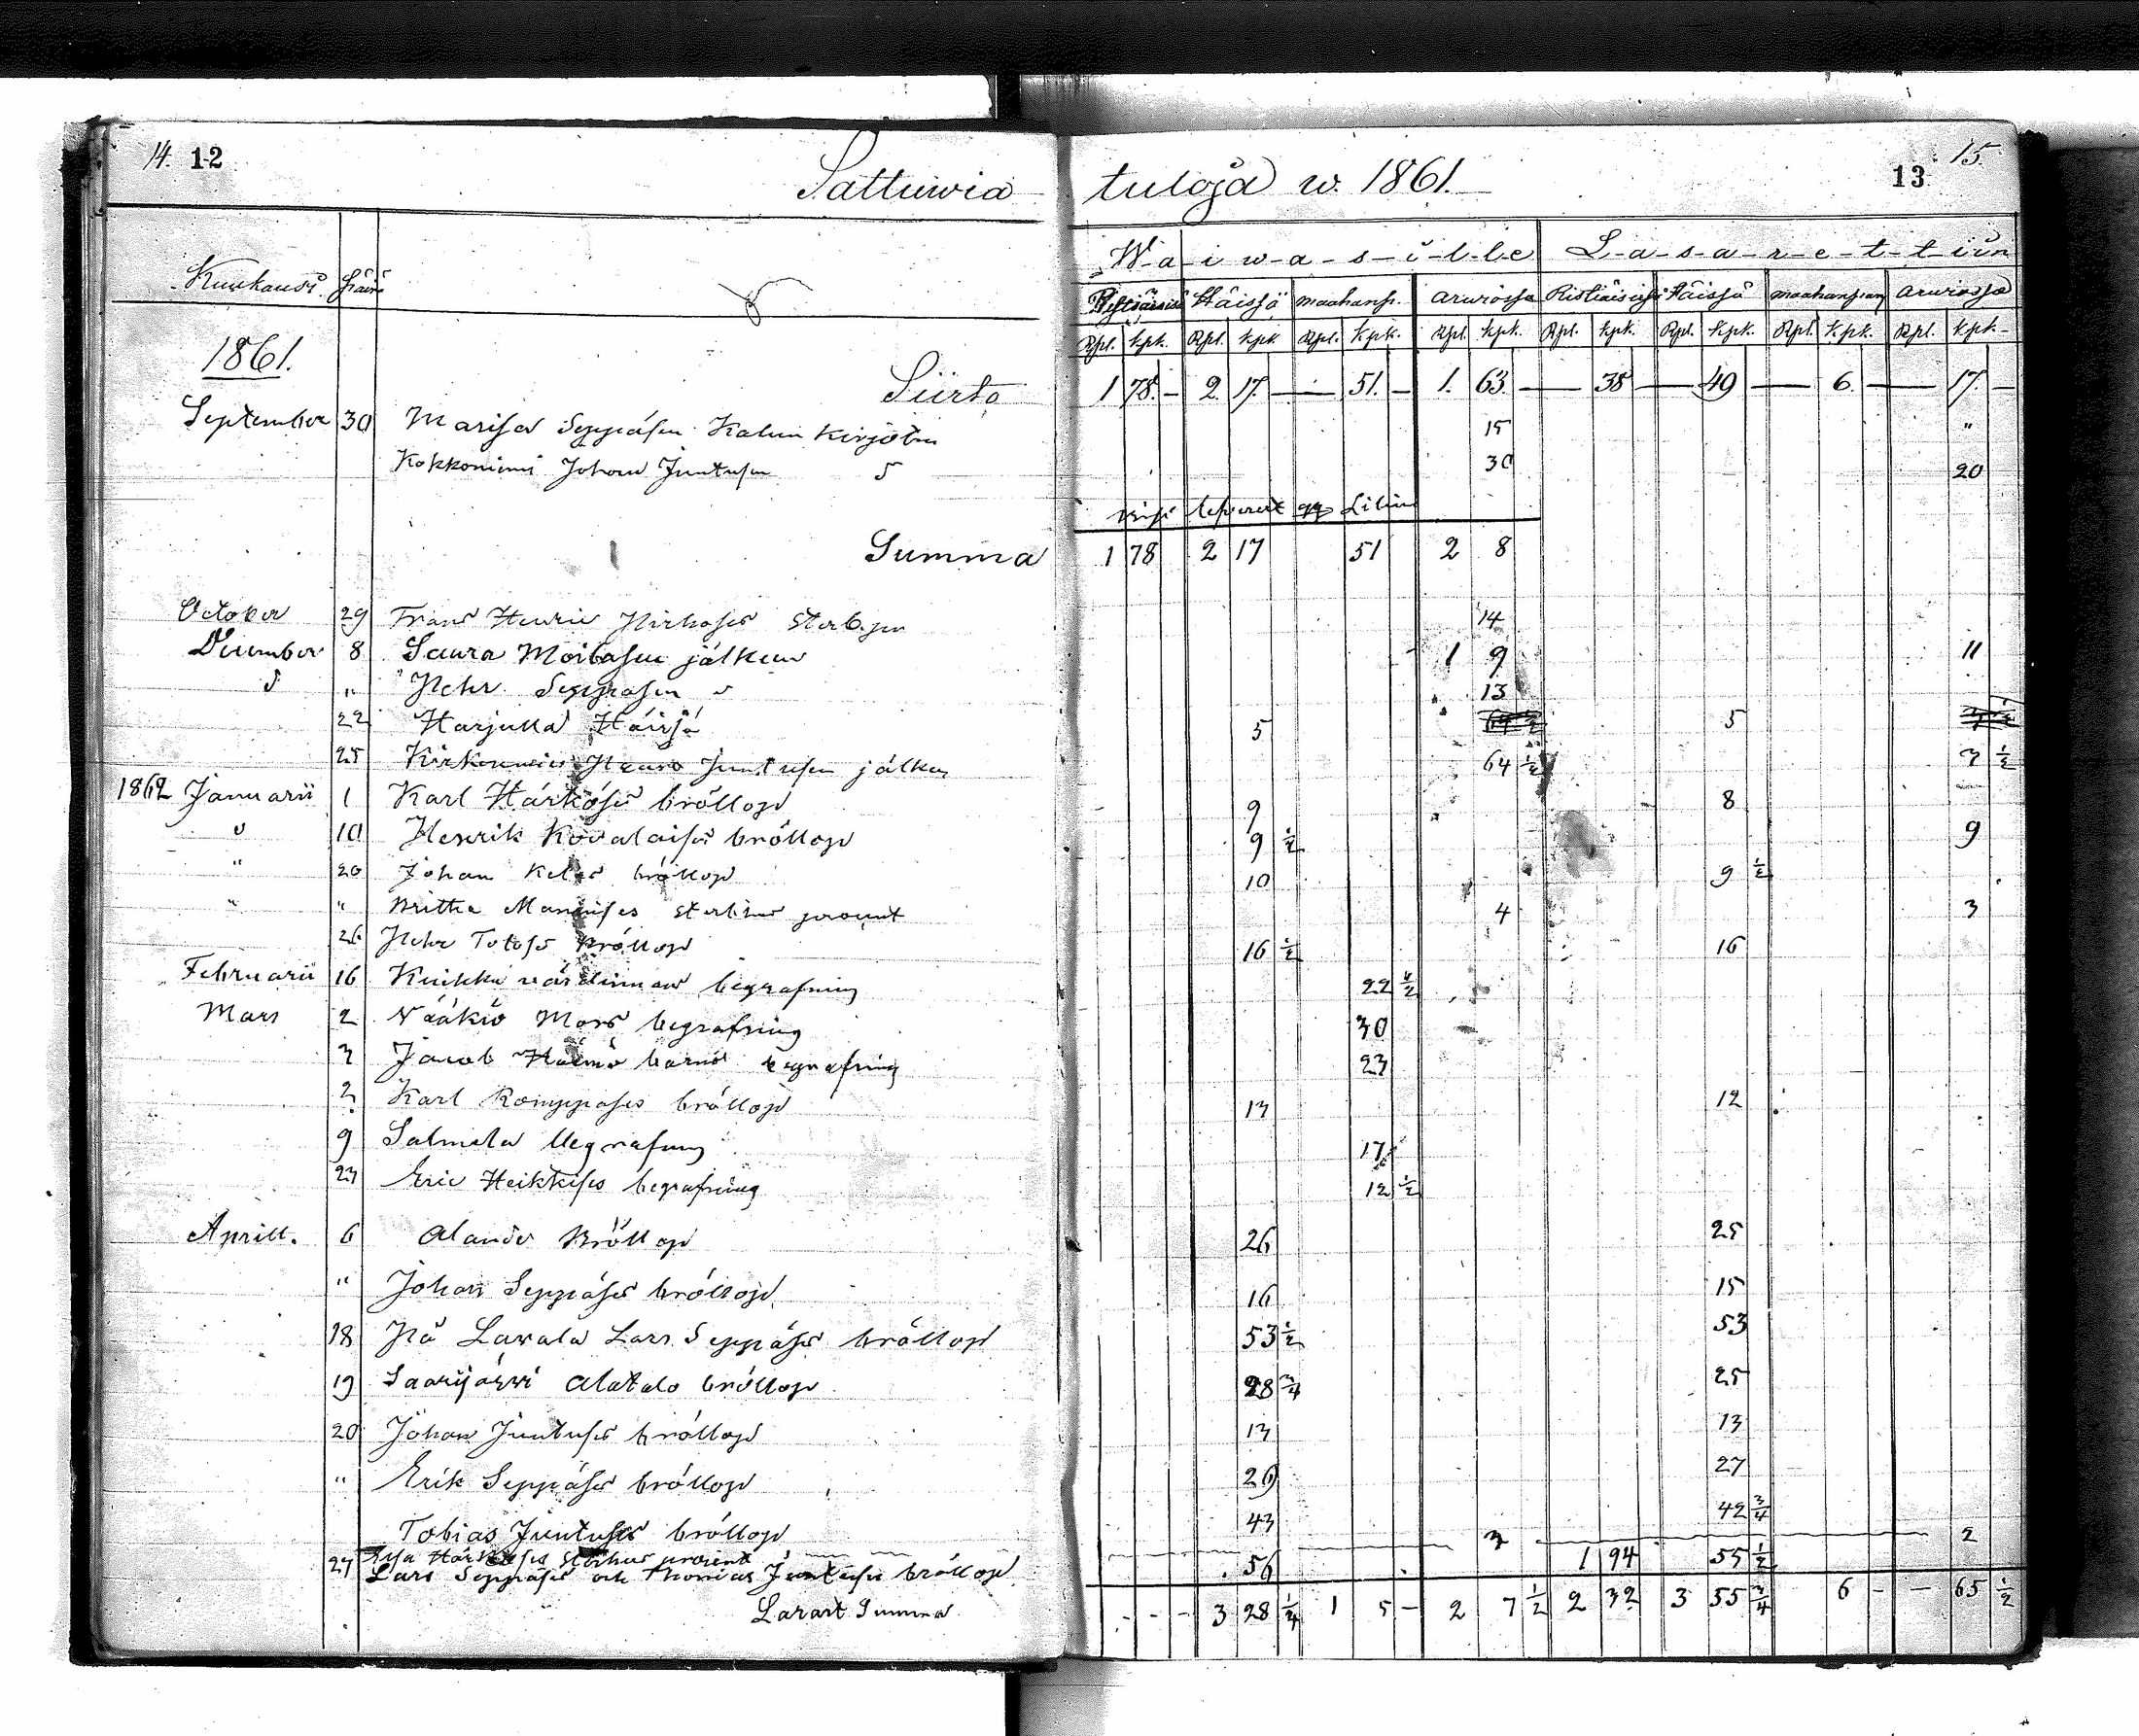 14. 12
Sattuwia tuloja w. 1861.
13 15.
W-a-i-w-a-s-i-l-l-e L-a-s-a-r-e-t-t-i-i-n
Kuukausi. Päivä
Ristiäisissä Häissä maahanp. arwiossa Ristiäisissä Häissä maahanpan arwiossa
Rpl. kpk. Rpl. kpk Rpl. kpk. Rpl. kpk. Rpl. kpk. Rpl. kpk. Rpl. kpk. Rpl. kpk.
1861.
Siirto 1 78. - 2. 17. - 51. - 1. 63. - 38 - 49 - 6. - 17. -
September 30 Seppäsen Kalun kirjoitu 15 "
Kokkoniemi Johan Juntusen 5 30 20
Summa 1 78 2 17 51 2 8
October 29 Frans Henric 14
December 8 Laura Moilasen jälkeen 1 9 11
" Petr. Seppäsen 13
22 Harjulla Häissä 5 5
25 Juntusen jälken 64 1/2 3 1/2
1862 Januarii 1 Karl Härkösés bröllop 9 8
10 Henrik Kovalaises bröllop 9 1/2 9
" 20 Johan bröllop 10 9 1/2
" " Britha procent 4 3
26 Petr bröllop 16 1/2 16
Februarii 16 värdinnans begrafning 22 1/2
Mars 2 Vääkiö Mors begrafning 30
2 Jacob barns begrafning 23
2 Karl Romppases bröllop 13 12
9 Salmela begrafning 17
23 Eric Heikkises begrafning 12 1/2
Aprill. 6 Bröllop 26 25
" Johan Seppäses bröllop 16 15
18 På Lavala Lars Seppäses bröllop 53 1/2 53
19 Saarijärvi Alatalo bröllop 28 3/4 25
20 Johan Juntuses bröllop 13 13
" Erik Seppäses bröllop 29 27
Tobias Juntuses bröllop 43 42 3/4
procent 3 2
27 Lars Seppäses och Juntuses bröllop 56 1 94 55 1/2
Summa - - - 3 28 1/4 1 5 - 2 7 1/2 2 32 3 55 3/4 6 - - 65 1/2